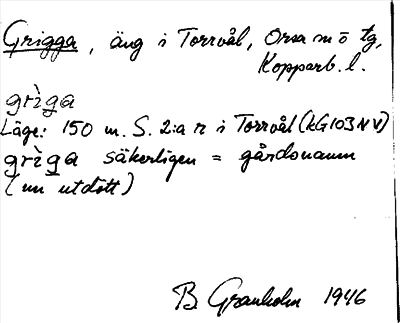 Grigga, äng i Torrvål, Orsa sn ö tg,
Kopparb. l.
grìga
Läge: 150 m. S. 2:a r i Torrvål (kG 103 NV)
grìga säkerligen = gårdsnamn
(nu utdött)
B. Granholm 1946